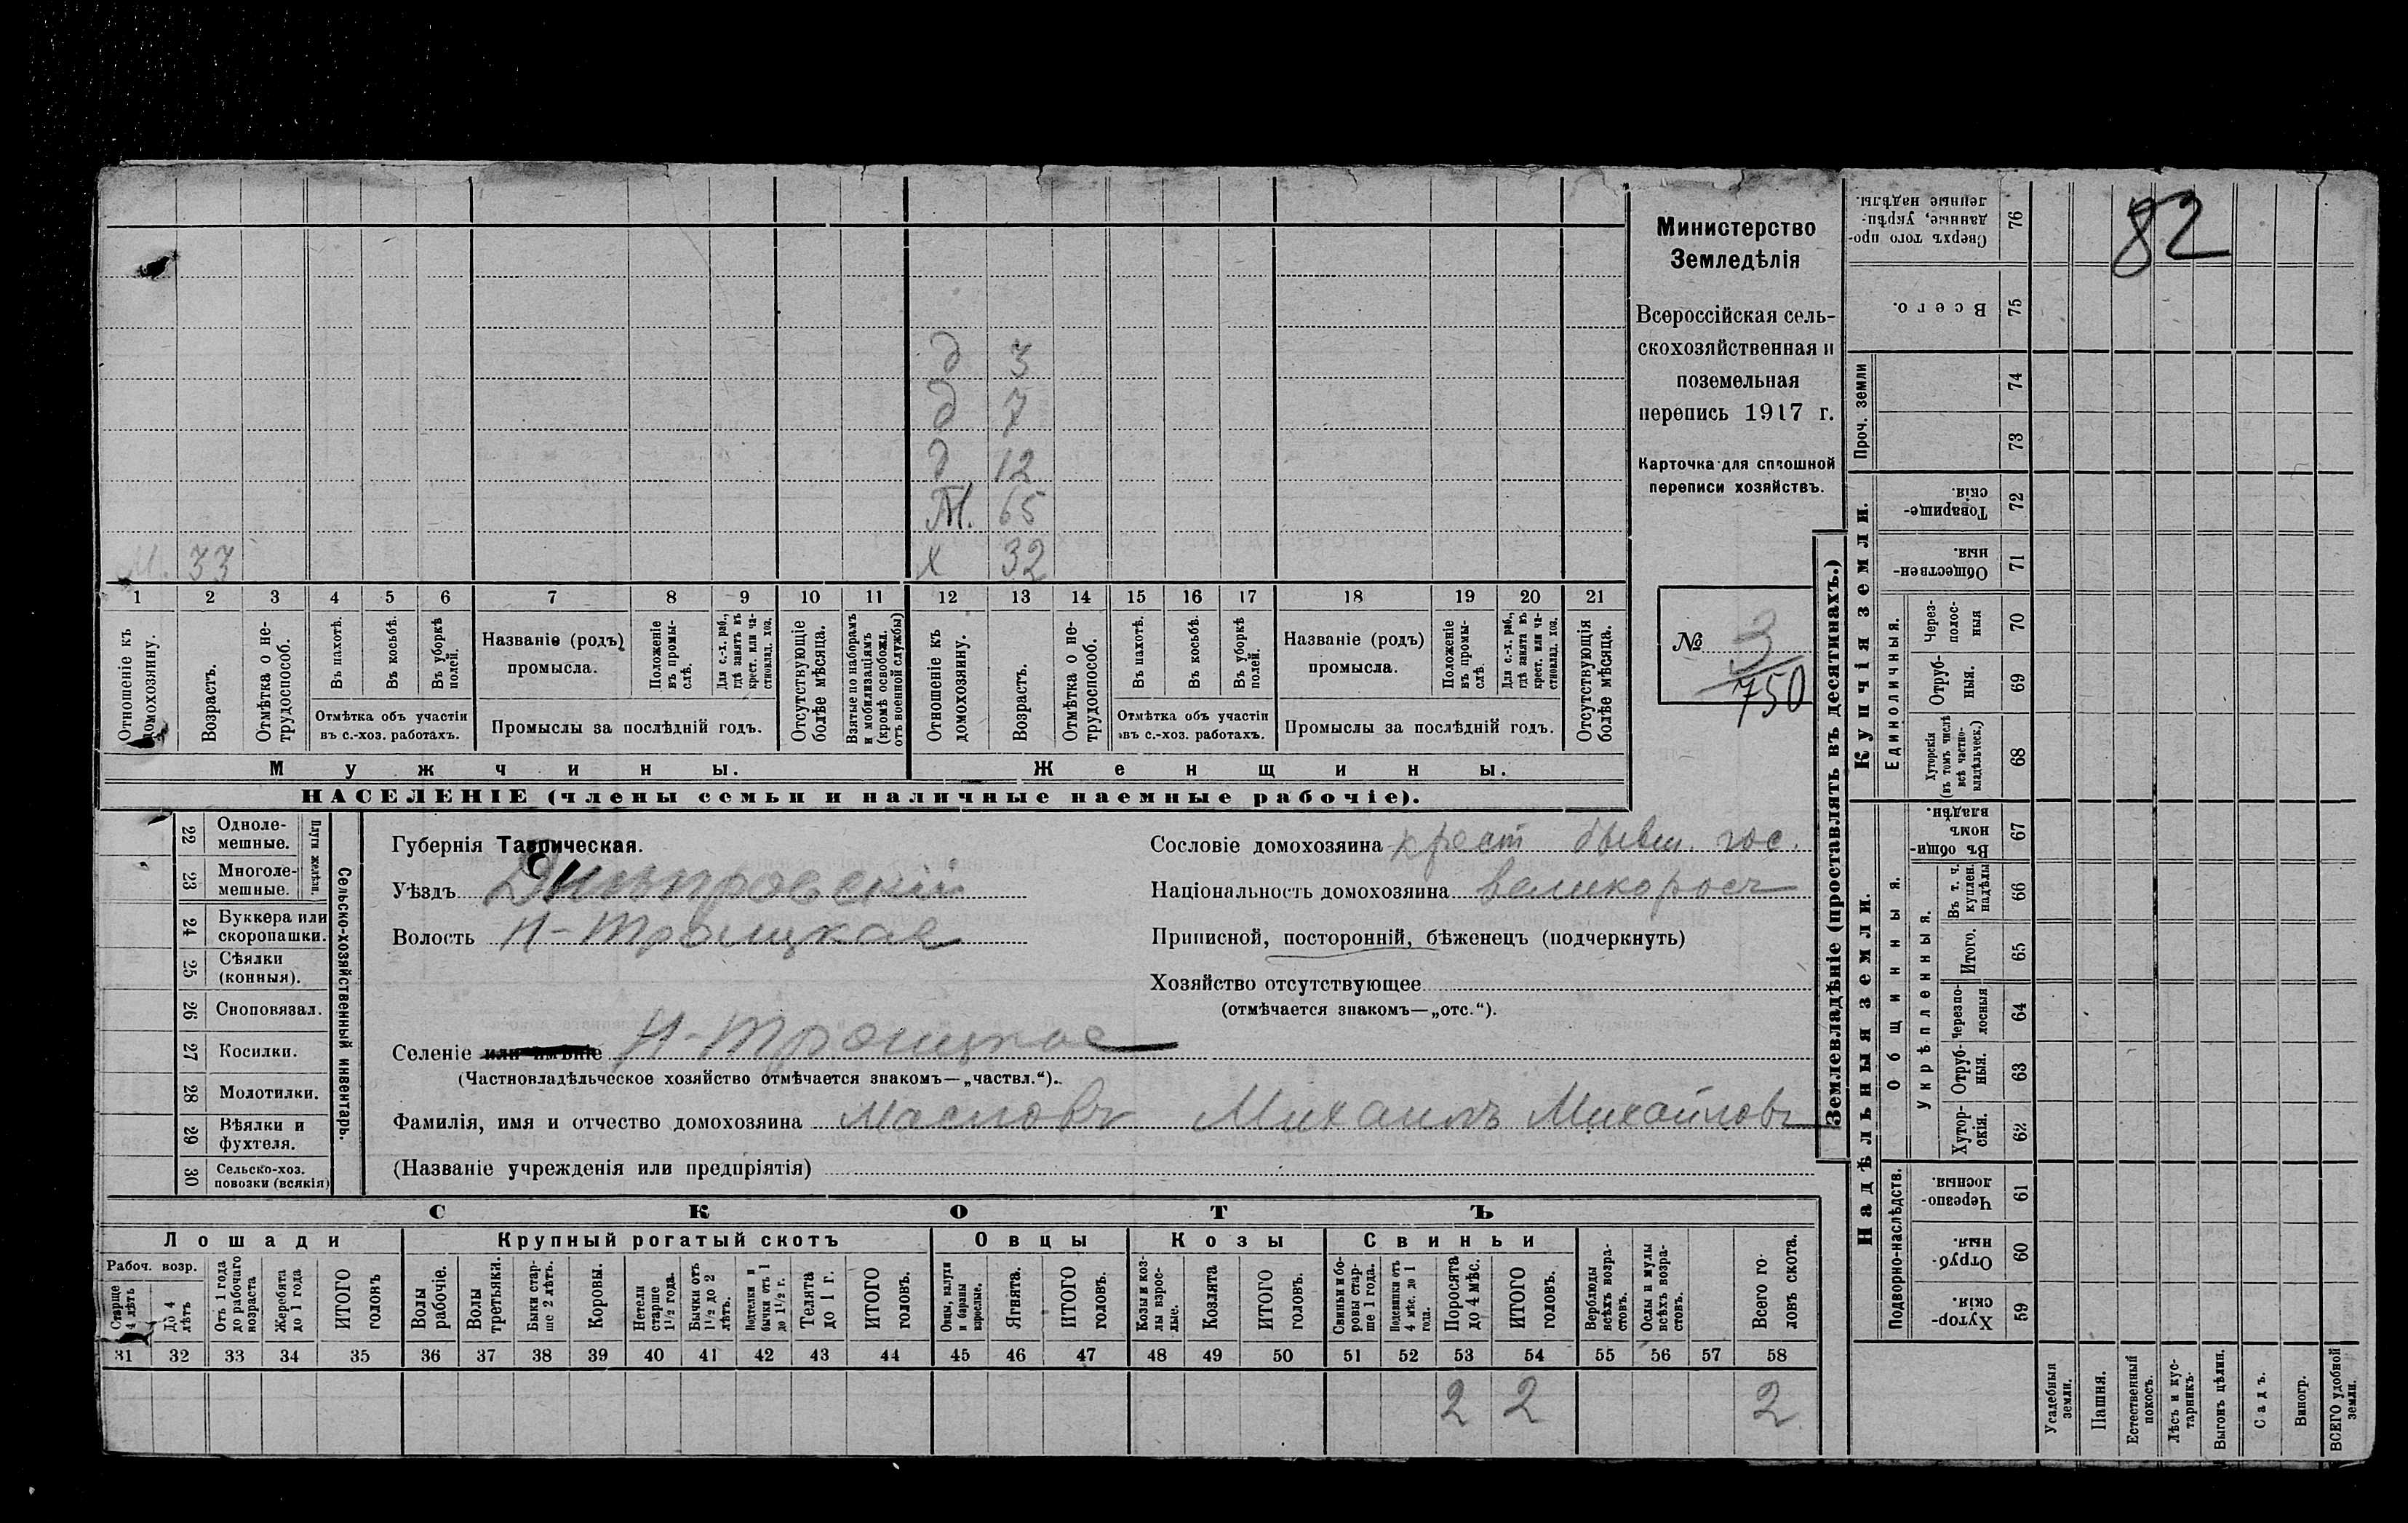 82
Министерство
Земледѣлія
Всероссійская сель-
скохозяйственная и
поземельная
перепись 1917 г.
Карточка для сплошной
переписи хозяйствъ.
№ 3
750
д 3
д 7
д 12
М. 65
х 32
М. 33
1 2 3 4 5 6 7 8 9 10 11 12 13 14 15 16 17 18 19 20 21
Отношеніе къ домохозяину.
Возрастъ.
Отмѣтка о не-трудоспособ.
Въ пахотѣ.
Въ косьбѣ.
Въ уборкѣ полей.
Отмѣтка объ участіи
въ с.-хоз. работахъ.
Названіе (родъ)
промысла.
Положеніе въ промы-слѣ.
Для с.-х. раб., гдѣ занятъ въ крест. или ча-стновлад. хоз.
Промыслы за послѣдній годъ.
Отсутствующіе болѣе мѣсяца.
Взятые по наборамъ и мобилизаціямъ (кромѣ освобожд. отъ военной службы)
Отношеніе къ домохозяину.
Возрастъ.
Отмѣтка о не-трудоспособ.
Въ пахотѣ.
Въ косьбѣ.
Въ уборкѣ полей.
Отмѣтка объ участіи
въ с.-хоз. работахъ.
Названіе (родъ)
промысла.
Положеніе въ промы-слѣ.
Для с.-х. раб., гдѣ занята въ крест. или ча-стновлад. хоз.
Промыслы за послѣдній годъ.
Отсутствующія болѣе мѣсяца.
Мужчины.
Женщины.
НАСЕЛЕНІЕ (члены семьи и наличные наемные рабочіе).
22 Одноле-мешные.
23 Многоле-мешные.
Плуги желѣзн.
24 Буккера или скоропашки.
25 Сѣялки (конныя).
26 Сноповязал.
27 Косилки.
28 Молотилки.
29 Вѣялки и фухтеля.
30 Сельско-хоз. повозки (всякія)
Сельско-хозяйственный инвентарь.
Губернія Таврическая.
Уѣздъ Днѣпровскій
Волость Н-Троицкая
Селеніе или имѣніе Н-Троицкое
(Частновладѣльческое хозяйство отмѣчается знакомъ—„частвл.“).
Фамилія, имя и отчество домохозяина Масловъ Михаилъ Михайловъ
(Названіе учрежденія или предпріятія)
Сословіе домохозяина крест бывш. гос.
Національность домохозяина великороссъ
Приписной, посторонній, бѣженецъ (подчеркнуть)
Хозяйство отсутствующее
(отмѣчается знакомъ—„отс.“).
СКОТЪ
Лошади
Крупный рогатый скотъ
Овцы
Козы
Свиньи
Рабоч. возр.
Старще 4 лѣтъ
До 4 лѣтъ
Отъ 1 года до рабочаго возраста
Жеребята до 1 года
ИТОГО головъ
Волы рабочіе.
Волы третьяки.
Быки стар-ше 2 лѣтъ.
Коровы.
Нетели старше 1½ года.
Бычки отъ 1½ до 2 лѣтъ.
Нетелки и бычки отъ 1 до 1½ г.
Телята до 1 г.
ИТОГО головъ.
Овцы, валухи и бараны взрослые.
Ягнята.
ИТОГО головъ.
Козы и коз-лы взрос-лые.
Козлята
ИТОГО головъ.
Свиньи и бо-ровы стар-ше 1 года.
Подсвинки отъ 4 мѣс. до 1 года.
Поросята до 4 мѣс.
ИТОГО головъ.
Верблюды всѣхъ возра-стовъ.
Ослы и мулы всѣхъ возра-стовъ.
Всего го-ловъ скота.
31 32 33 34 35 36 37 38 39 40 41 42 43 44 45 46 47 48 49 50 51 52 53 54 55 56 57 58
2 2 2
Землевладѣніе (проставлять въ десятинахъ.)
Купчія земли.
Надѣльныя земли.
Сверхъ того про-данные, укрѣп-ленные надѣлы. 76
Всего. 75
Проч. земли
74
73
Товарище-скія. 72
Обществен-ныя. 71
Единоличныя.
Через-полос-ныя 70
Отруб-ныя. 69
Хуторскія (въ томъ числѣ всѣ частно-владѣльческ.) 68
Общинныя.
Въ общин-номъ владѣн. 67
Укрѣпленныя.
Въ т. ч. куплен. надѣлы 66
Итого. 65
Черезпо-лосныя 64
Отруб-ныя. 63
Хутор-скія. 62
Подворно-наслѣдств.
Черезпо-лосныя. 61
Отруб-ныя. 60
Хутор-скія. 59
Усадебныя земли.
Пашня.
Естественный покосъ.
Лѣсъ и кус-тарникъ.
Выгонъ цѣлин.
Садъ.
Виногр.
ВСЕГО удобной земли.